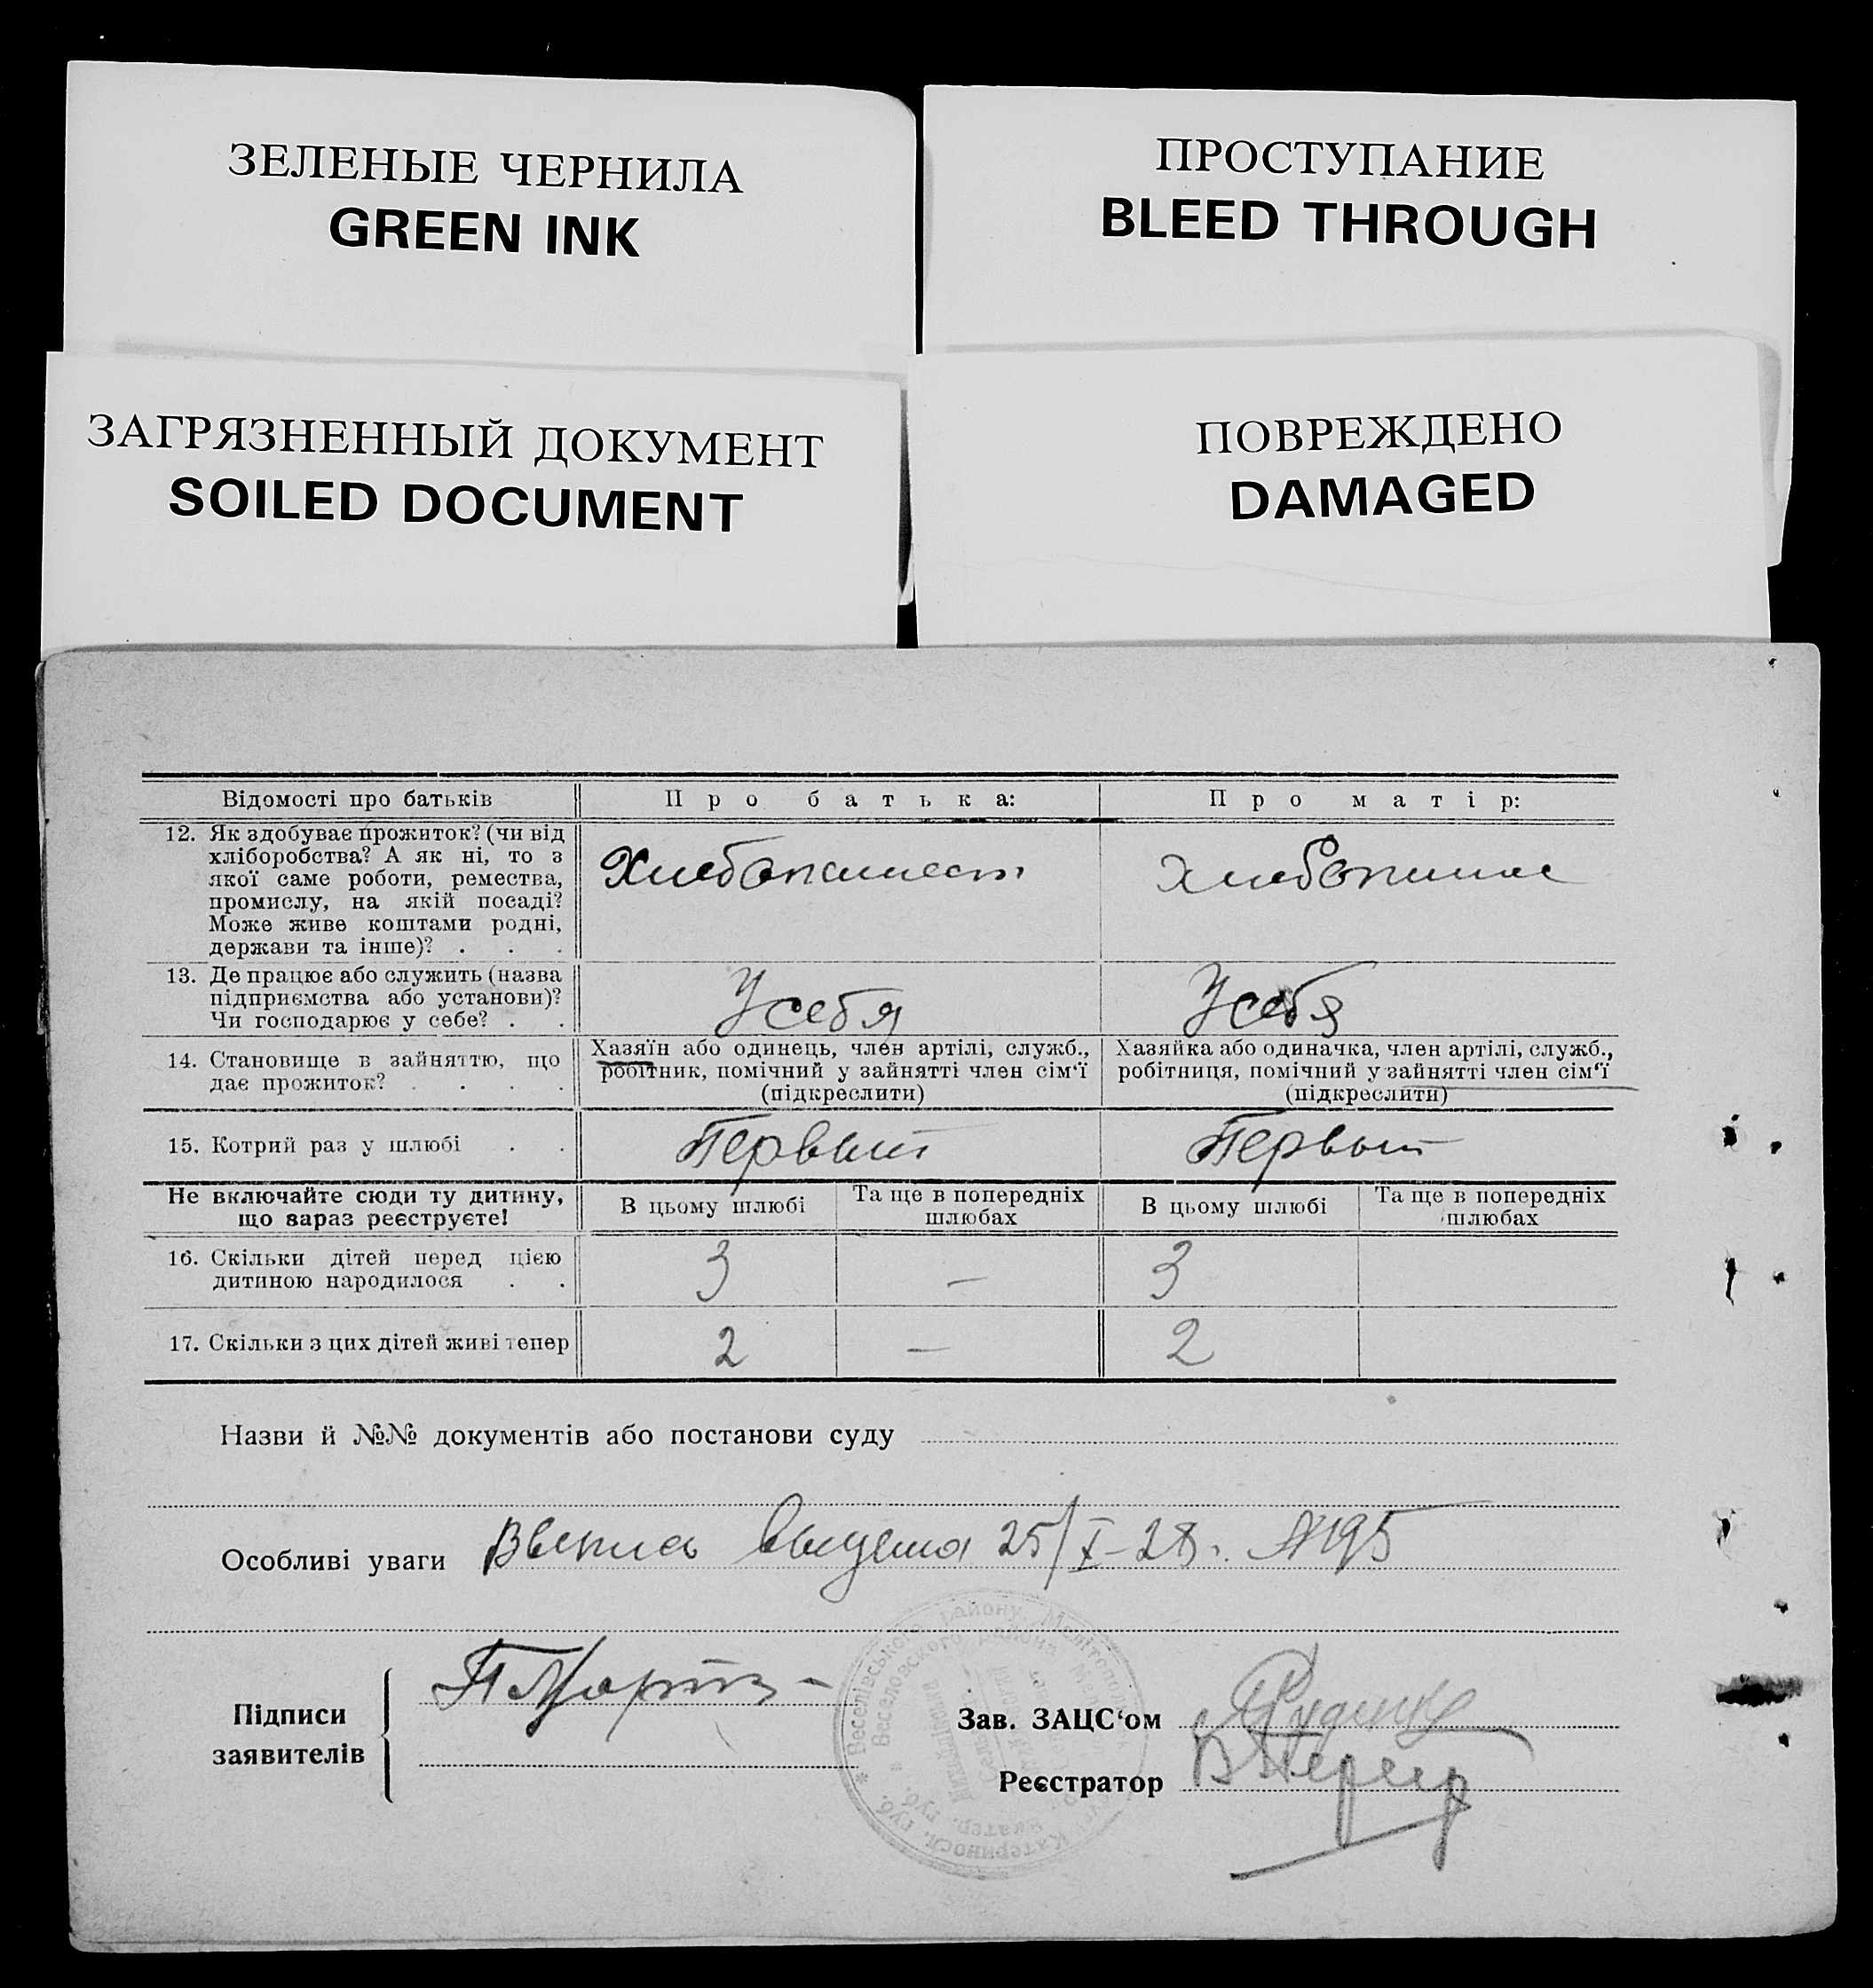 ЗЕЛЕНЫЕ ЧЕРНИЛА
GREEN INK
ПРОСТУПАНИЕ
BLEED THROUGH
ЗАГРЯЗНЕННЫЙ ДОКУМЕНТ
SOILED DOCUMENT
ПОВРЕЖДЕНО
DAMAGED
Відомості про батьків
Про батька:
Про матір:
12. Як здобуває прожиток? (чи від
хліборобства? А як ні, то з
якої саме роботи, ремества,
промислу, на якій посаді?
Може живе коштами родні,
держави та інше)? . . .
13. Де працює або служить (назва
підприємства або установи)?
Чи господарює у себе? . .
У себя
У себя
14. Становище в зайняттю, що
дає прожиток? . . . .
Хазяїн або одинець, член артілі, служб.,
робітник, помічний у зайнятті член сім'ї
(підкреслити)
Хазяйка або одиначка, член артілі, служб.,
робітниця, помічний у зайнятті член сім'ї
(підкреслити)
15. Котрий раз у шлюбі . .
Первый
Первый
Не включайте сюди ту дитину,
що зараз реєструєте!
В цьому шлюбі
Та ще в попередніх
шлюбах
В цьому шлюбі
Та ще в попередніх
шлюбах
16. Скільки дітей перед цією
дитиною народилося . .
3
—
3
17. Скільки з цих дітей живі тепер
2
—
2
Назви й №№ документів або постанови суду
Особливі уваги
Выпись выдана 25/X-28. №195
Підписи
заявителів
Зав. ЗАЦС'ом
Реєстратор